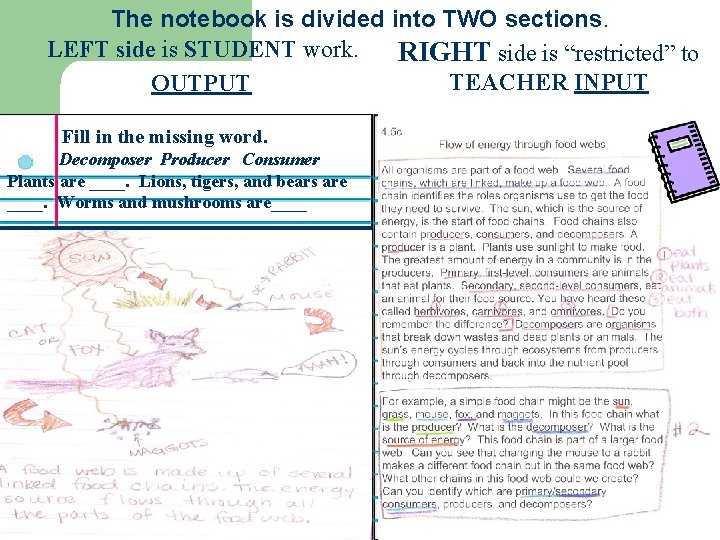 The notebook is divided into TWO sections.
LEFT side is STUDENT work.
OUTPUT
RIGHT side is “restricted” to
TEACHER INPUT
Fill in the missing word.
Decomposer Producer Consumer
Plants are ____. Lions, tigers, and bears are
____. Worms and mushrooms are____
SUN
RABBIT
MOUSE
CAT
OR
FOX
MAGGOTS
A food web is made up of several
linked food chains. The energy
source flows through all
the parts of the food web.
4.5c
Flow of energy through food webs
All organisms are part of a food web. Several food
chains, which are linked, make up a food web. A food
chain identifies the roles organisms use to get the food
they need to survive. The sun, which is the source of
energy, is the start of food chains. Food chains also
contain producers, consumers, and decomposers. A
producer is a plant. Plants use sunlight to make food.
The greatest amount of energy in a community is in the
producers. Primary, first-level, consumers are animals
that eat plants. Secondary, second-level consumers, eat
an animal for their food source. You have heard these
called herbivores, carnivores, and omnivores. Do you
remember the difference? Decomposers are organisms
that break down wastes and dead plants or animals. The
sun's energy cycles through ecosystems from producers
through consumers and back into the nutrient pool
through decomposers.
① eat
plants
② eat
animals
③ eat
both
For example, a simple food chain might be the sun,
grass, mouse, fox, and maggots. In this food chain what
is the producer? What is the decomposer? What is the
source of energy? This food chain is part of a larger food
web. Can you see that changing the mouse to a rabbit
makes a different food chain but in the same food web?
What other chains in this food web could we create?
Can you identify which are primary/secondary
consumers, producers, and decomposers?
#2